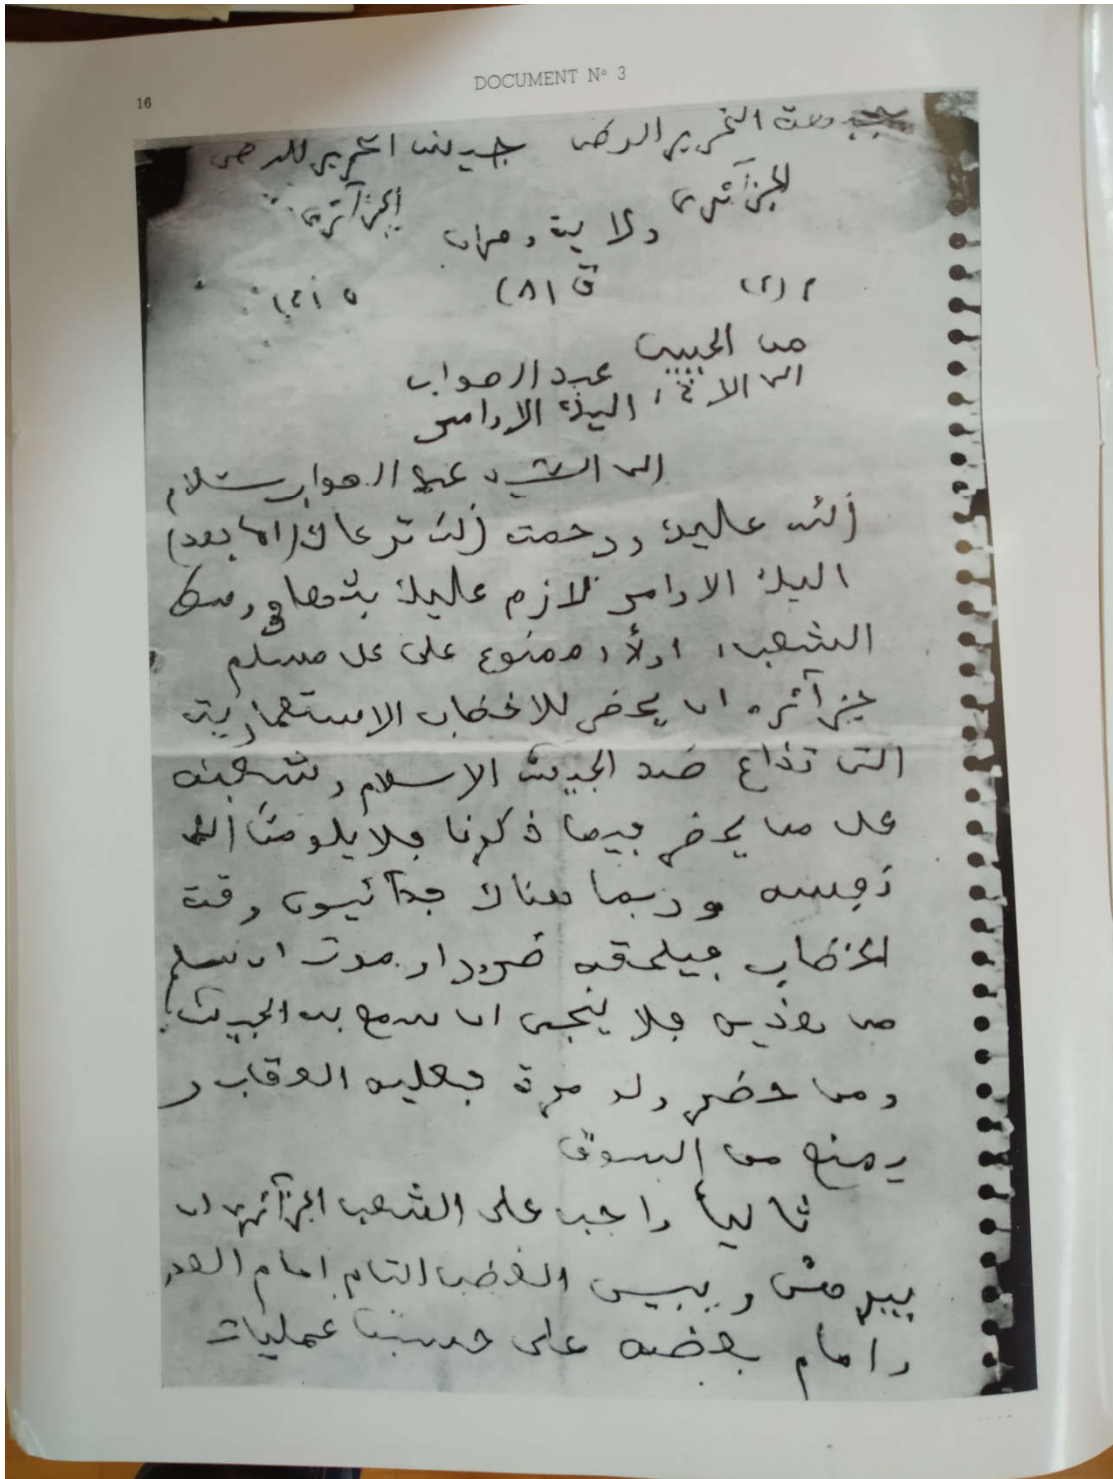 16
DOCUMENT N° 3
جبهة التحرير الوطن جيش التحرير الوطن
الجزآئرى الجزآئرى
ولاية وهران
م (٢) ق (٨)
من الحبيب
الى الاخ، عبد الصواب
اليك الاوامر
الى السيد عبد الصواب سلام
الله عليك ورحمت الله ترعاك (اما بعد)
اليك الاوامر لازم عليك بثها فى وسط
الشعب، اولاً، ممنوع على كل مسلم
جزآئرى ان يحضر للاخطاب الاستعمارية
التى تذاع ضد الجيش الاسلام وشعبه
كل من يحضر فيما ذكرنا فلا يلومن الا
نفسه وربما هناك فدآئيون وقت
الخطاب فيلحقه ضرر او موت ان سلم
من هذين فلا ينجى ان سمع به الجيش
ومن حضر ولو مرة فعليه العقاب و
يمنع من السوق
ثانياً واجب على الشعب الجزآئرى ان
يبرهن ويبين الغضب التام امام العدو
وامام بعضه على حسب عمليات